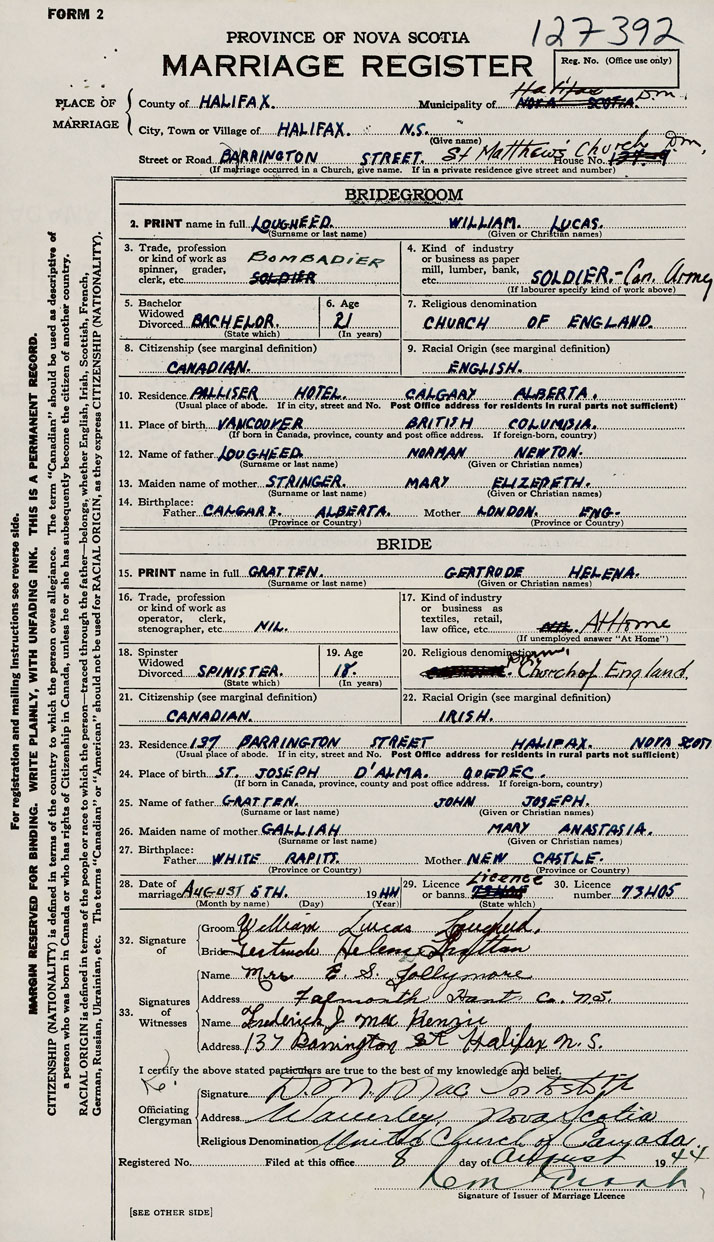 FORM 2
127392
PROVINCE OF NOVA SCOTIA
MARRIAGE REGISTER
Reg. No. (Office use only)
PLACE OF MARRIAGE
County of HALIFAX. Municipality of NOVA SCOTIA Halifax Dm.
City, Town or Village of HALIFAX. N.S.
(Give name)
Street or Road BARRINGTON STREET. St Matthew's Church Dm, House No.
(If marriage occurred in a Church, give name. If in a private residence give street and number)
BRIDEGROOM
2. PRINT name in full LOUGHEED. WILLIAM. LUCAS.
(Surname or last name) (Given or Christian names)
3. Trade, profession or kind of work as spinner, grader, clerk, etc. SOLDIER BOMBADIER
4. Kind of industry or business as paper mill, lumber, bank, etc. SOLDIER.-Can. Army
(If labourer specify kind of work above)
5. Bachelor Widowed Divorced BACHELOR.
(State which)
6. Age 21
(In years)
7. Religious denomination CHURCH OF ENGLAND.
8. Citizenship (see marginal definition) CANADIAN.
9. Racial Origin (see marginal definition) ENGLISH.
10. Residence PALLISER HOTEL. CALGARY ALBERTA.
(Usual place of abode. If in city, street and No. Post Office address for residents in rural parts not sufficient)
11. Place of birth VANCOUVER BRITISH COLUMBIA.
(If born in Canada, province, county and post office address. If foreign-born, country)
12. Name of father LOUGHEED. NORMAN NEWTON.
(Surname or last name) (Given or Christian names)
13. Maiden name of mother STRINGER. MARY ELIZEBETH.
(Surname or last name) (Given or Christian names)
14. Birthplace: Father CALGARY. ALBERTA. Mother LONDON. ENG-
(Province or Country) (Province or Country)
BRIDE
15. PRINT name in full GRATTEN. GERTRUDE HELENA.
(Surname or last name) (Given or Christian names)
16. Trade, profession or kind of work as operator, clerk, stenographer, etc. NIL.
17. Kind of industry or business as textiles, retail, law office, etc. NIL. At Home
(If unemployed answer "At Home")
18. Spinster Widowed Divorced SPINISTER.
(State which)
19. Age 18.
(In years)
20. Religious denomination Dm. Church of England.
21. Citizenship (see marginal definition) CANADIAN.
22. Racial Origin (see marginal definition) IRISH.
23. Residence 137 BARRINGTON STREET HALIFAX. NOVA SCOTI
(Usual place of abode. If in city, street and No. Post Office address for residents in rural parts not sufficient)
24. Place of birth ST. JOSEPH D'ALMA. QUEBEC.
(If born in Canada, province, county and post office address. If foreign-born, country)
25. Name of father GRATTEN. JOHN JOSEPH.
(Surname or last name) (Given or Christian names)
26. Maiden name of mother GALLIAH MARY ANASTASIA.
(Surname or last name) (Given or Christian names)
27. Birthplace: Father WHITE RAPITS. Mother NEW CASTLE.
(Province or Country) (Province or Country)
28. Date of marriage AUGUST 5TH. 1944
(Month by name) (Day) (Year)
29. Licence or banns 73405 Licence
(State which)
30. Licence number 73405
32. Signature of
Groom William Lucas Lougheed.
Bride Gertrude Helena Gratten
33. Signatures of Witnesses
Name Mrs E. S. Jollymore
Address Falmouth Hant Co. N.S.
Name Frederick J. Mac Kenzie
Address 137 Barrington St Halifax N. S.
I certify the above stated particulars are true to the best of my knowledge and belief.
Officiating Clergyman
Signature D. M. Mac
Address Waverley, Nova Scotia
Religious Denomination United Church of Canada.
Registered No. Filed at this office 8 day of August 1944
Signature of Issuer of Marriage Licence
[SEE OTHER SIDE]
For registration and mailing instructions see reverse side.
MARGIN RESERVED FOR BINDING. WRITE PLAINLY, WITH UNFADING INK. THIS IS A PERMANENT RECORD.
CITIZENSHIP (NATIONALITY) is defined in terms of the country to which the person owes allegiance. The term "Canadian" should be used as descriptive of
a person who was born in Canada or who has rights of Citizenship in Canada, unless he or she has subsequently become the citizen of another country.
RACIAL ORIGIN is defined in terms of the people or race to which the person—traced through the father—belongs, whether English, Irish, Scottish, French,
German, Russian, Ukrainian, etc. The terms "Canadian" or "American" should not be used for RACIAL ORIGIN, as they express CITIZENSHIP (NATIONALITY).